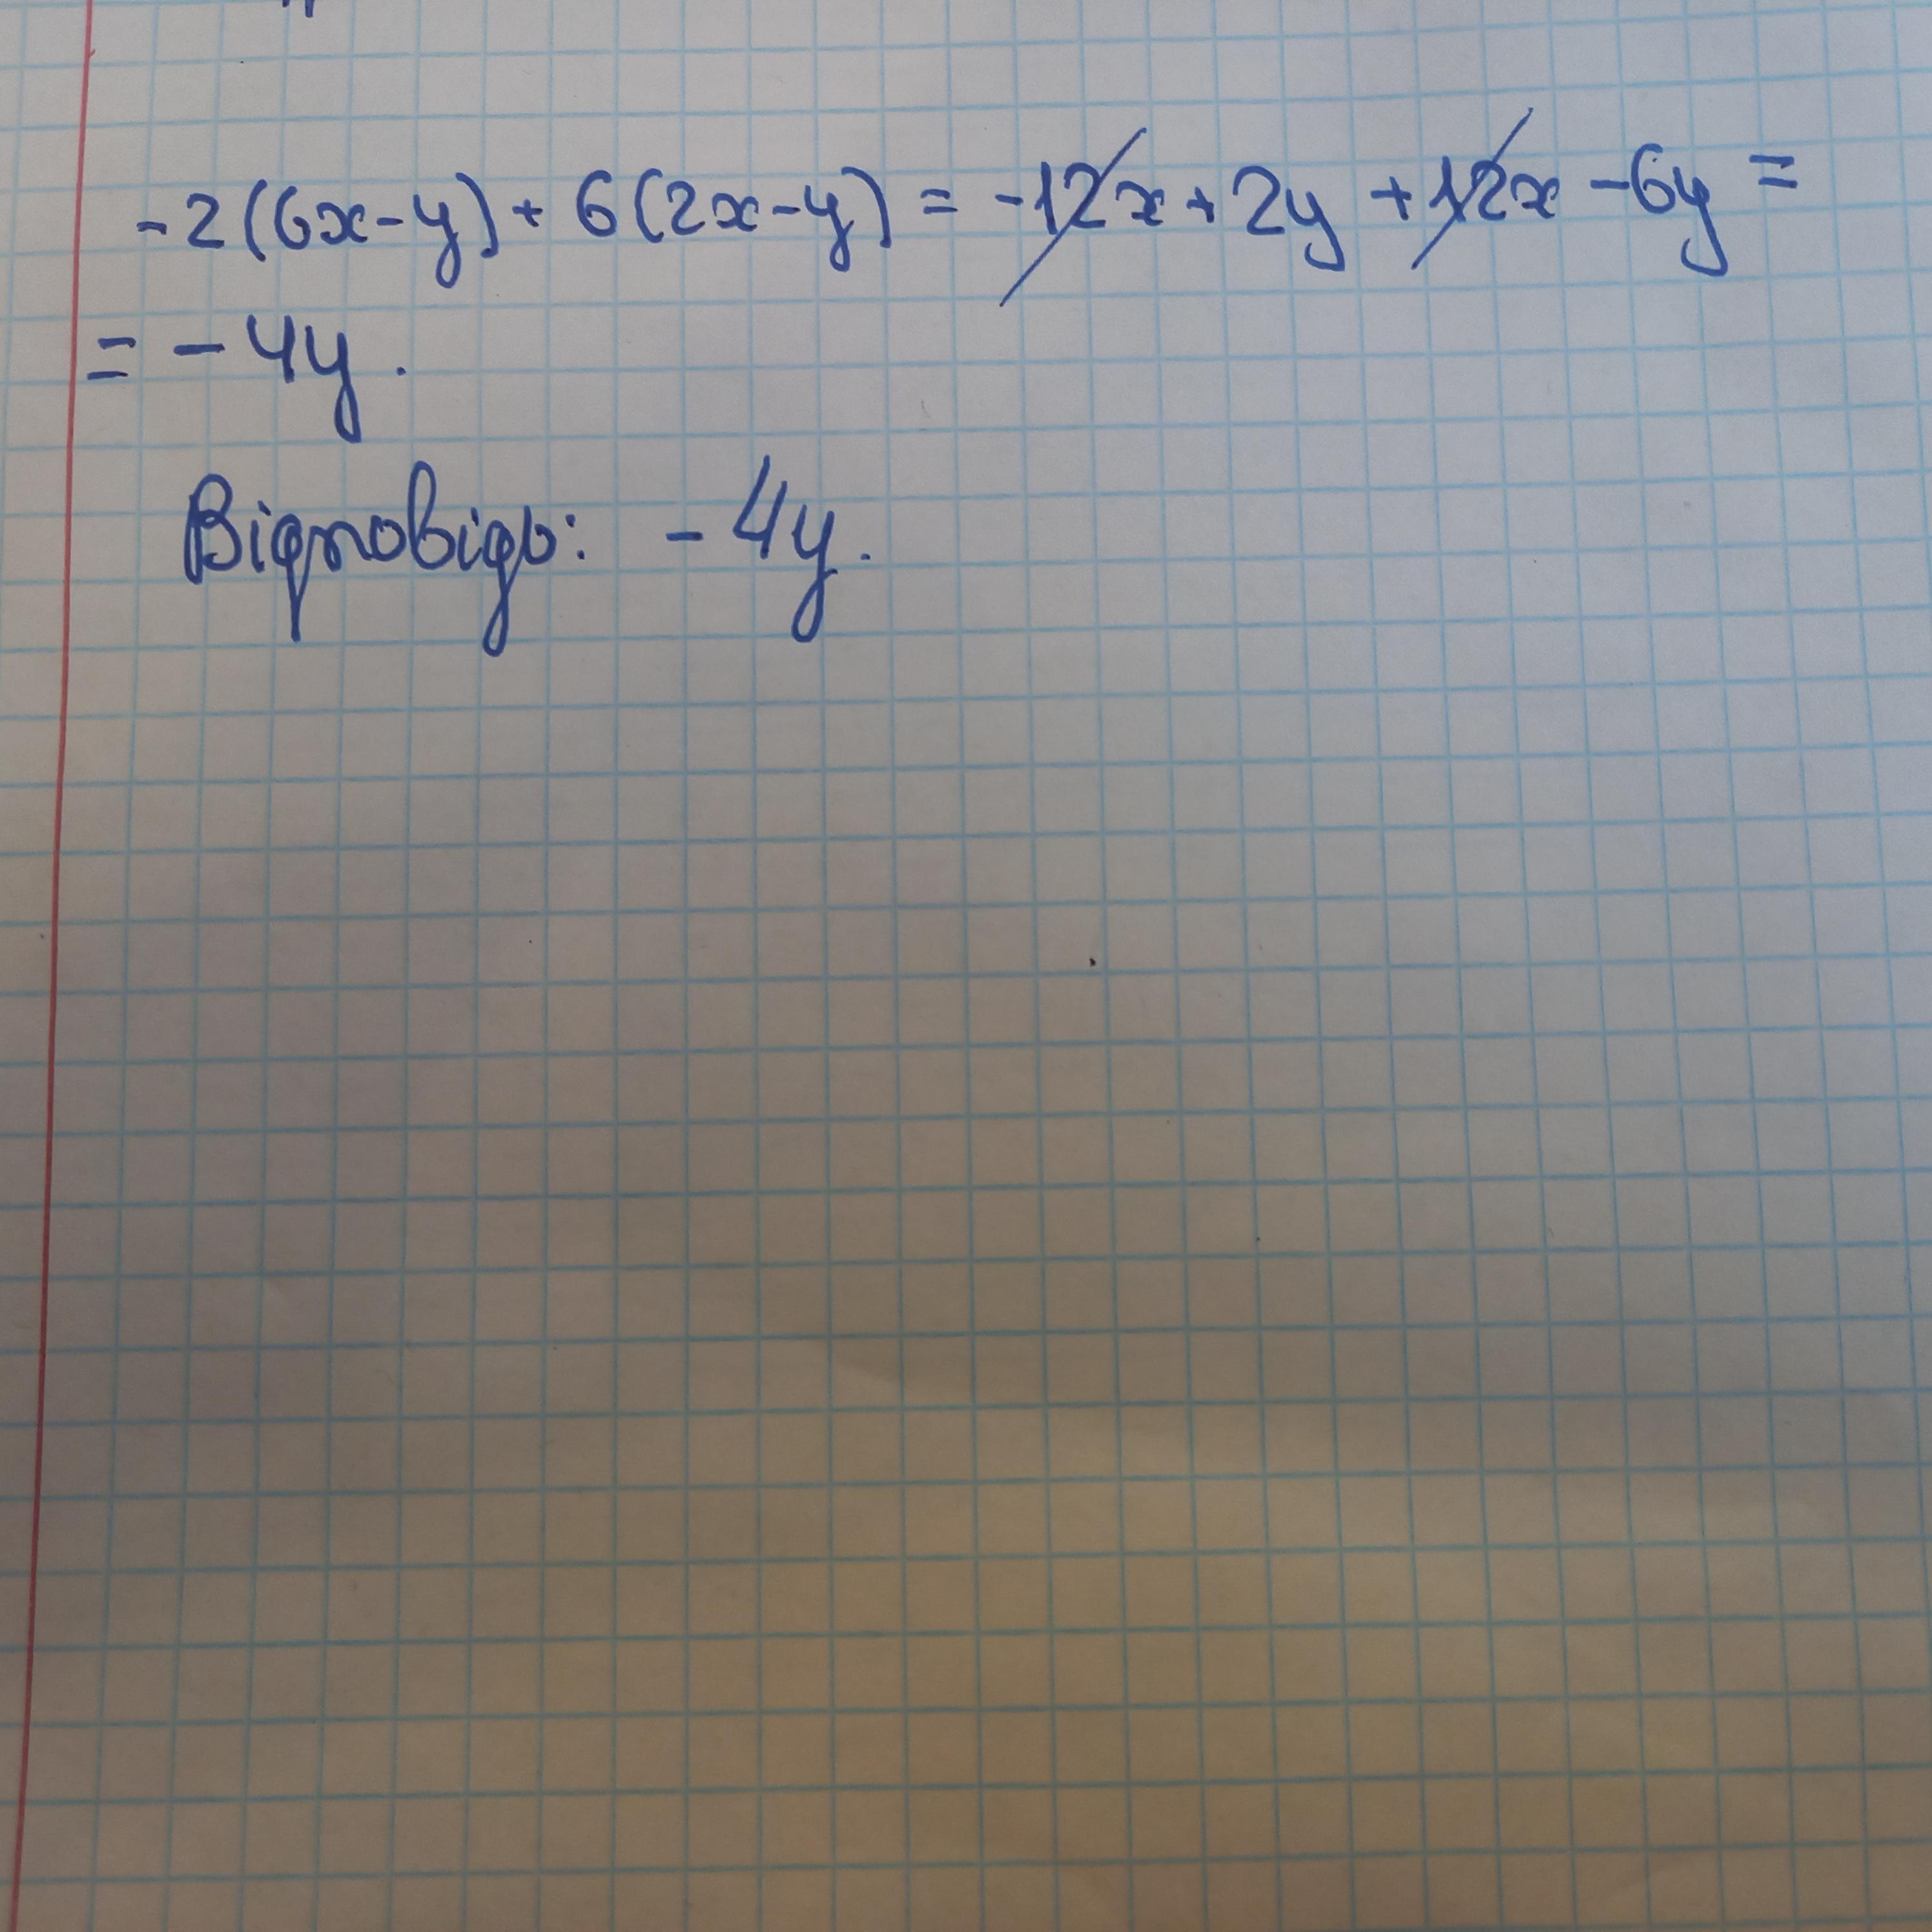 -2(6x-y)+6(2x-y)=-12x+2y+12x-6y=
=-4y.
Відповідь: -4y.